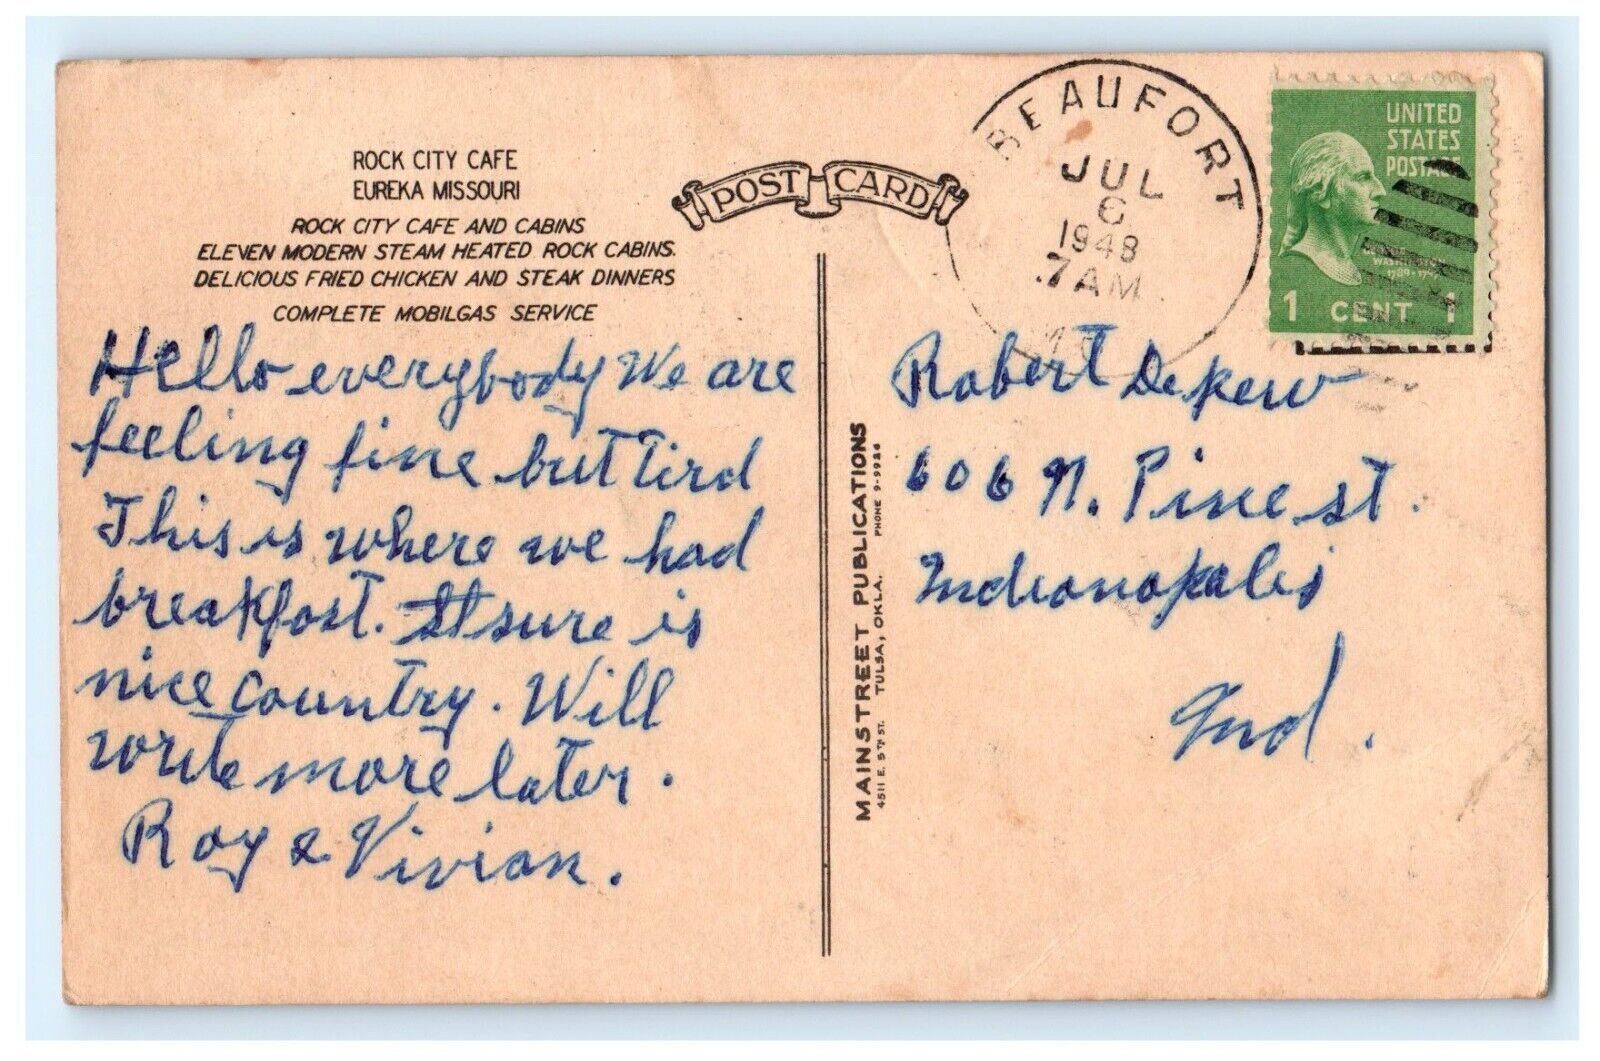 ROCK CITY CAFE
EUREKA MISSOURI
ROCK CITY CAFE AND CABINS
ELEVEN MODERN STEAM HEATED ROCK CABINS.
DELICIOUS FRIED CHICKEN AND STEAK DINNERS
COMPLETE MOBILGAS SERVICE
Hello everybody We are
feeling fine but tird
This is where we had
breakfast. It sure is
nice country. Will
write more later.
Roy & Vivian.
POST CARD
MAINSTREET PUBLICATIONS
4511 E. 5TH ST. TULSA, OKLA. PHONE 9-9984
BEAUFORT
JUL
6
1948
7 AM
UNITED
STATES
POSTAGE
WASHINGTON
1 CENT 1
Robert Dekew
606 N. Pine st.
Indianapolis
Ind.